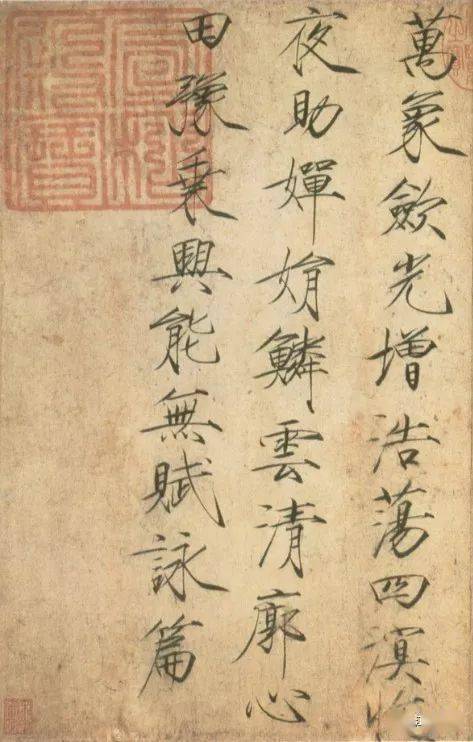 萬象歛光增浩蕩四溟收
夜助嬋娟鱗雲清廓心
田豫乘興能無賦詠篇